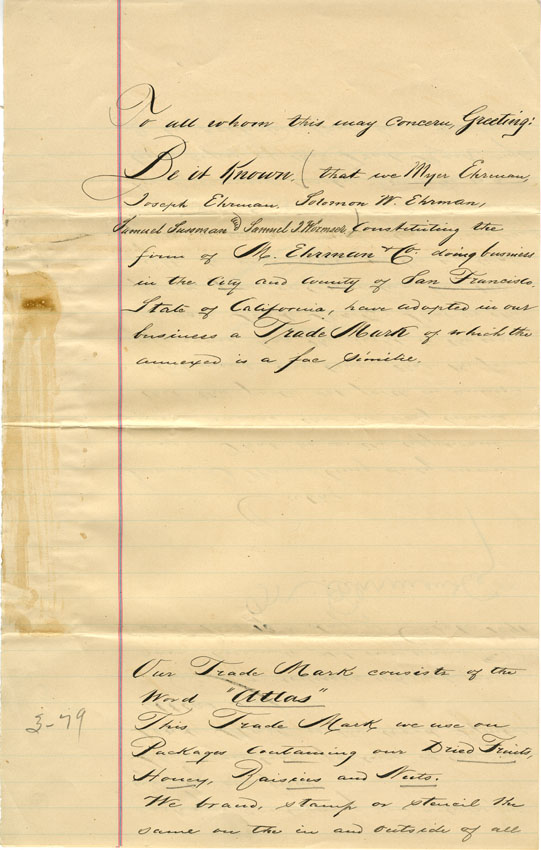 To all whom this may concern, Greeting:
Be it Known, (that we Myer Ehrman,
Joseph Ehrman, Solomon W. Ehrman,
Samuel Sussman & Samuel I Wormser) Constituting the
firm of M. Ehrman & Co. doing business
in the City and County of San Francisco,
State of California, have adopted in our
business a Trade Mark of which the
annexed is a fac Simile.
Our Trade Mark consists of the
Word "Atlas"
This Trade Mark we use on
Packages Containing our Dried Fruits,
Honey, Raisins and Nuts.
We brand, stamp or stencil the
same on the in and outside of all
3-79